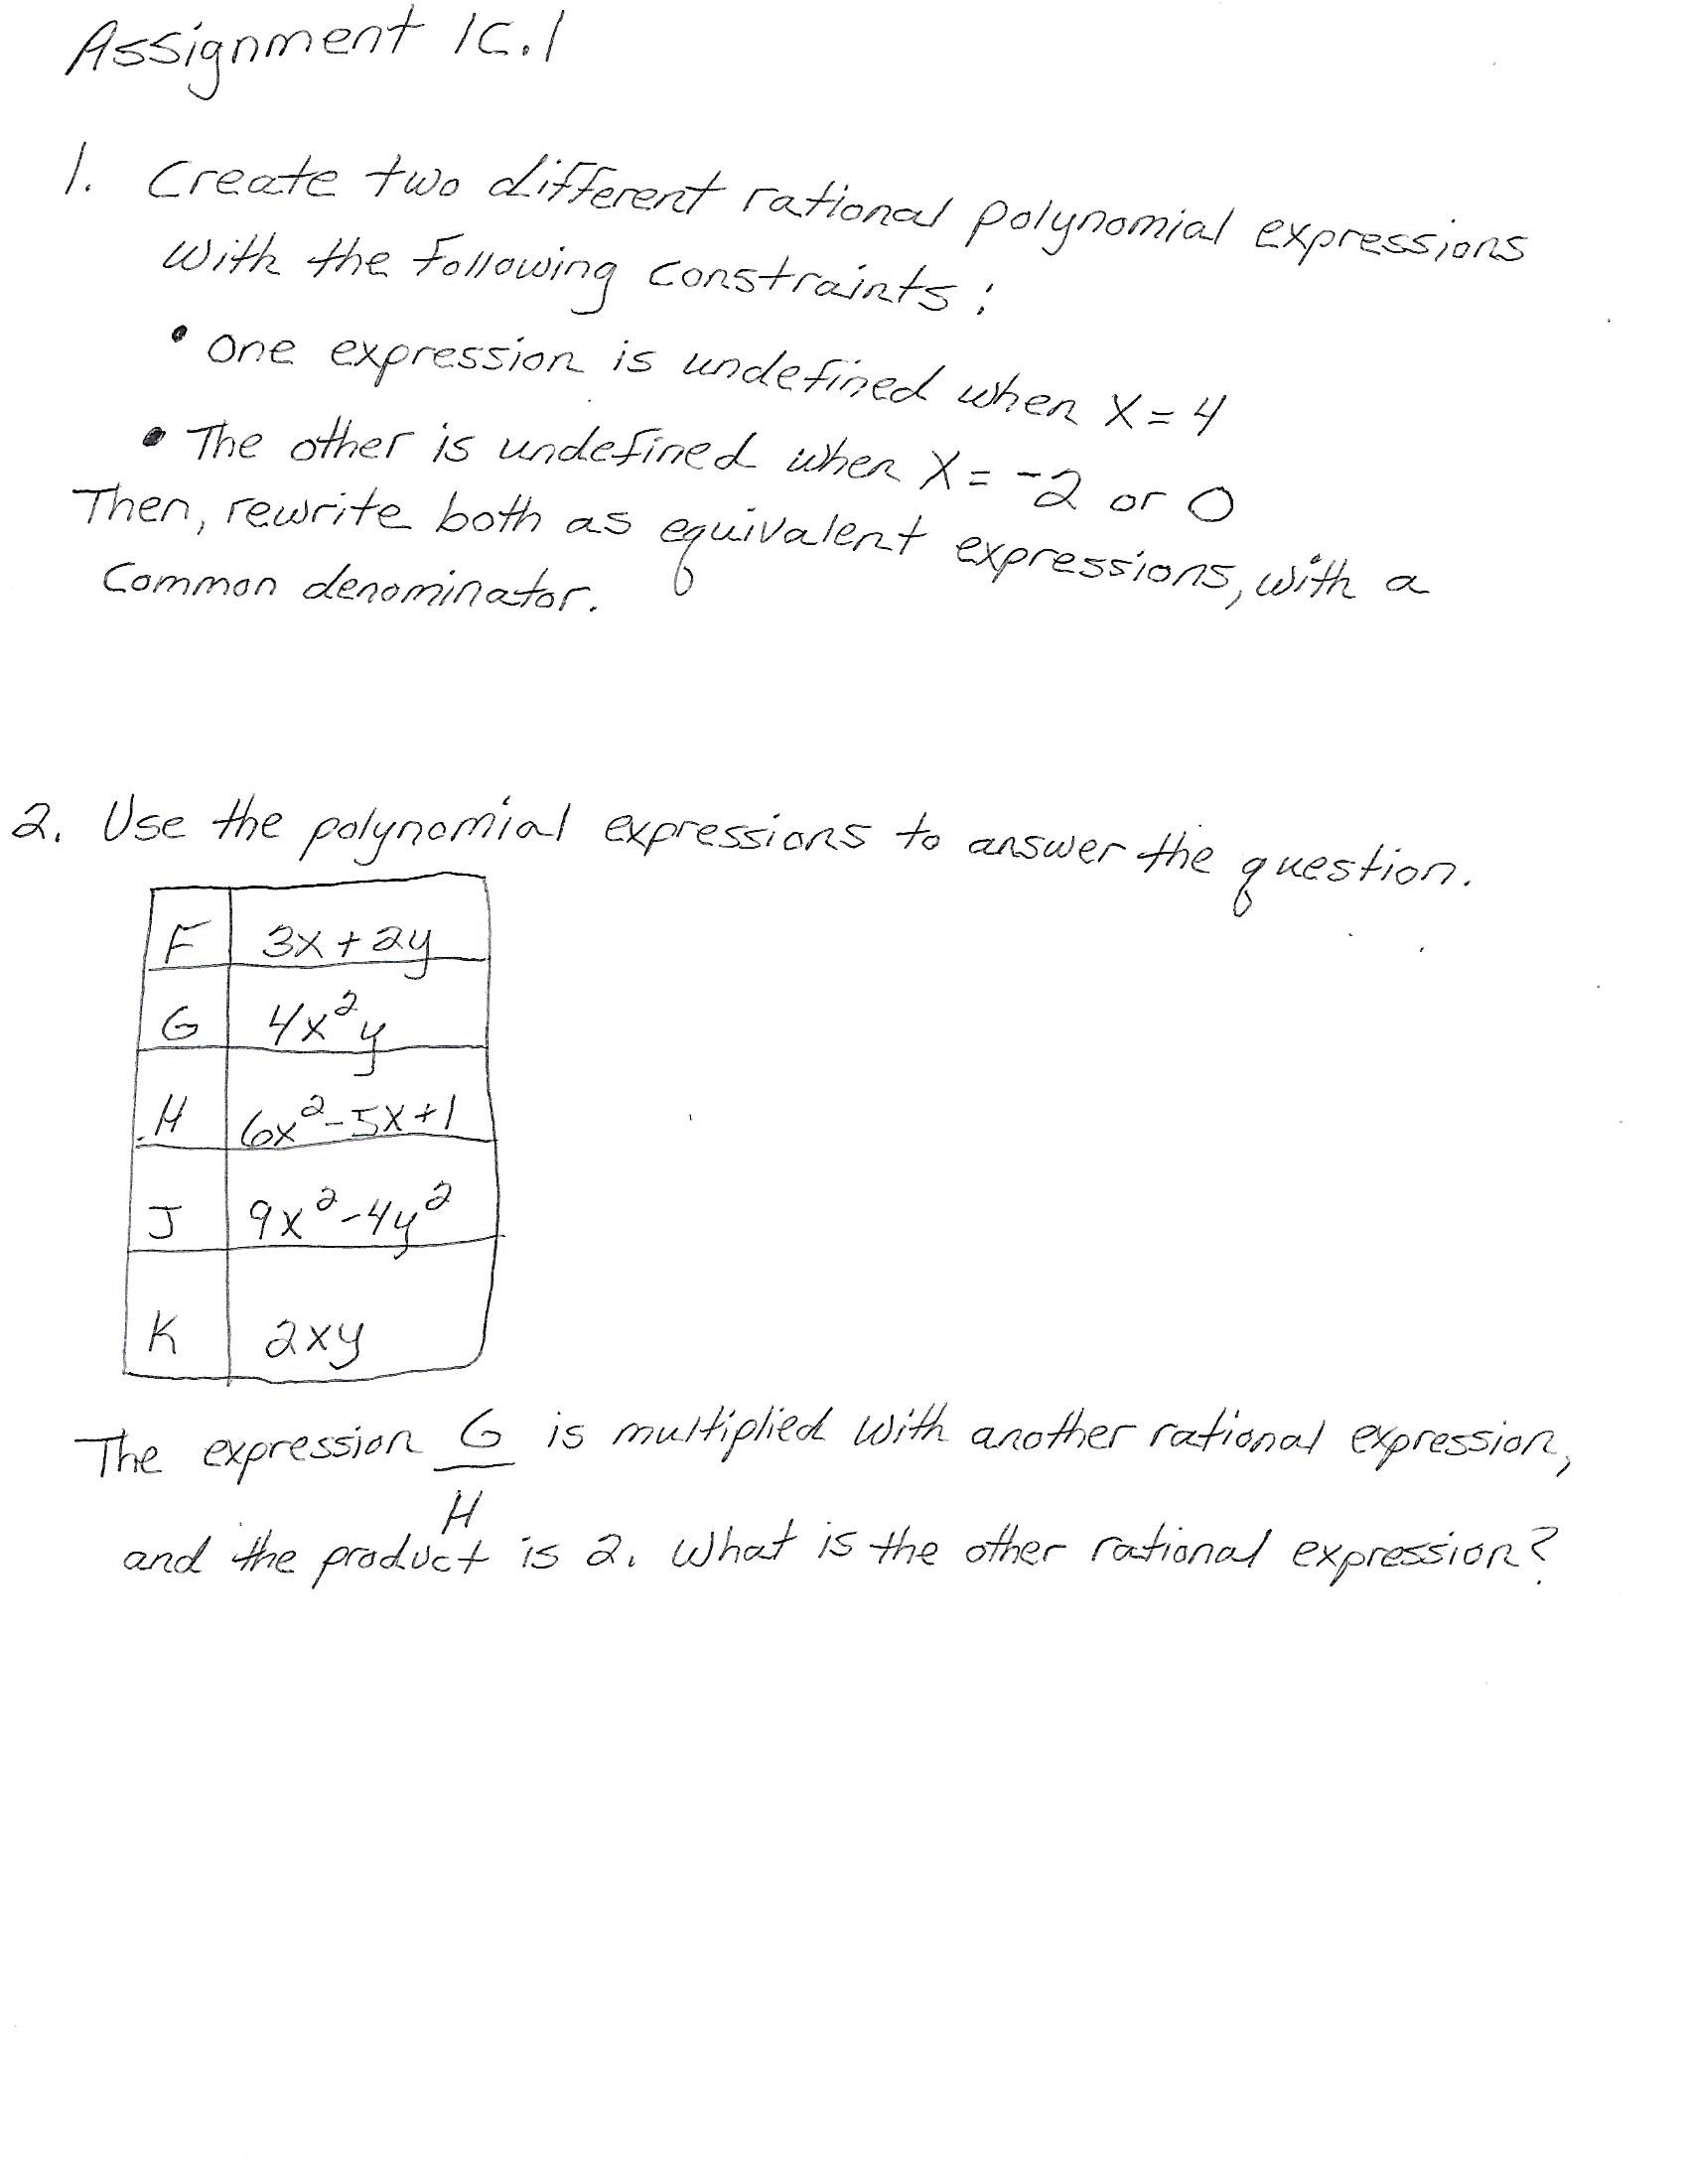 Assignment 1C.1
1. Create two different rational polynomial expressions
with the following constraints:
• One expression is undefined when x = 4
• The other is undefined when x = -2 or 0
Then, rewrite both as equivalent expressions, with a
common denominator.
2. Use the polynomial expressions to answer the question.
F 3x + 2y
G 4x²y
H 6x² - 5x + 1
J 9x² - 4y²
K 2xy
The expression G/H is multiplied with another rational expression,
and the product is 2. What is the other rational expression?